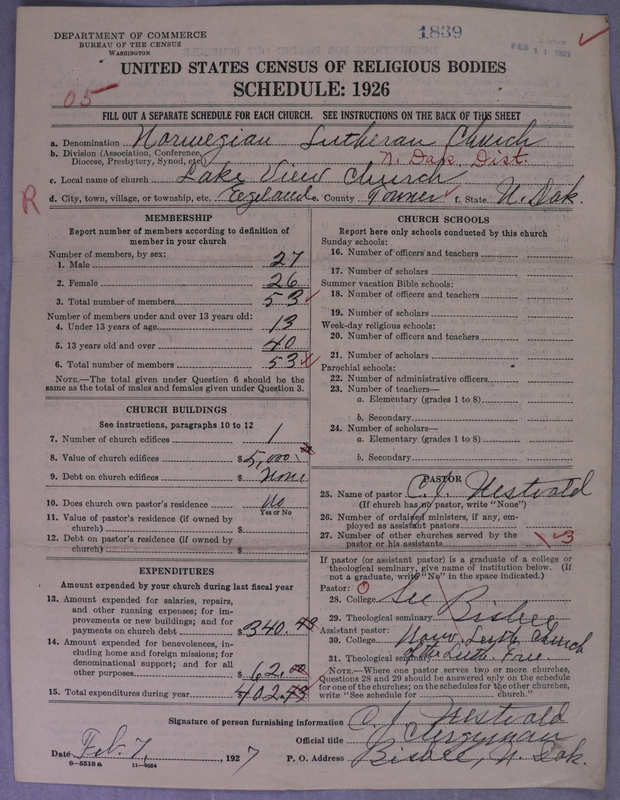 1839
DEPARTMENT OF COMMERCE
BUREAU OF THE CENSUS
WASHINGTON
UNITED STATES CENSUS OF RELIGIOUS BODIES
SCHEDULE: 1926
05
FILL OUT A SEPARATE SCHEDULE FOR EACH CHURCH. SEE INSTRUCTIONS ON THE BACK OF THIS SHEET
a. Denomination Norwegian Lutheran Church
b. Division (Association, Conference, Diocese, Presbytery, Synod, etc.) N. Dak. Dist.
c. Local name of church Lake View Church
R
d. City, town, village, or township, etc. Egeland e. County Towner f. State N. Dak.
MEMBERSHIP
Report number of members according to definition of
member in your church
Number of members, by sex:
1. Male 27
2. Female 26
3. Total number of members 53
Number of members under and over 13 years old:
4. Under 13 years of age 13
5. 13 years old and over 40
6. Total number of members 53
NOTE.—The total given under Question 6 should be the
same as the total of males and females given under Question 3.
CHURCH BUILDINGS
See instructions, paragraphs 10 to 12
7. Number of church edifices 1
8. Value of church edifices $5,000
9. Debt on church edifices $ None
10. Does church own pastor's residence No
Yes or No
11. Value of pastor's residence (if owned by
church) $
12. Debt on pastor's residence (if owned by
church) $
EXPENDITURES
Amount expended by your church during last fiscal year
13. Amount expended for salaries, repairs,
and other running expenses; for im-
provements or new buildings; and for
payments on church debt $340.43
14. Amount expended for benevolences, in-
cluding home and foreign missions; for
denominational support; and for all
other purposes $62.00
15. Total expenditures during year $402.43
CHURCH SCHOOLS
Report here only schools conducted by this church
Sunday schools:
16. Number of officers and teachers
17. Number of scholars
Summer vacation Bible schools:
18. Number of officers and teachers
19. Number of scholars
Week-day religious schools:
20. Number of officers and teachers
21. Number of scholars
Parochial schools:
22. Number of administrative officers
23. Number of teachers—
a. Elementary (grades 1 to 8)
b. Secondary
24. Number of scholars—
a. Elementary (grades 1 to 8)
b. Secondary
PASTOR
25. Name of pastor C. J. Nestvold
(If church has no pastor, write "None")
26. Number of ordained ministers, if any, em-
ployed as assistant pastors
27. Number of other churches served by the
pastor or his assistants 3
If pastor (or assistant pastor) is a graduate of a college or
theological seminary, give name of institution below. (If
not a graduate, write "No" in the space indicated.)
Pastor: 0
28. College See
29. Theological seminary Bisbee
Assistant pastor:
30. College Norw. Luth. Church
31. Theological seminary of the Luth. Free
NOTE.—Where one pastor serves two or more churches,
Questions 28 and 29 should be answered only on the schedule
for one of the churches; on the schedules for the other churches,
write "See schedule for church."
Signature of person furnishing information C. J. Nestvold
Official title Clergyman
Date Feb. 7, 1927 P. O. Address Bisbee, N. Dak.
8—5518 a 11—9554